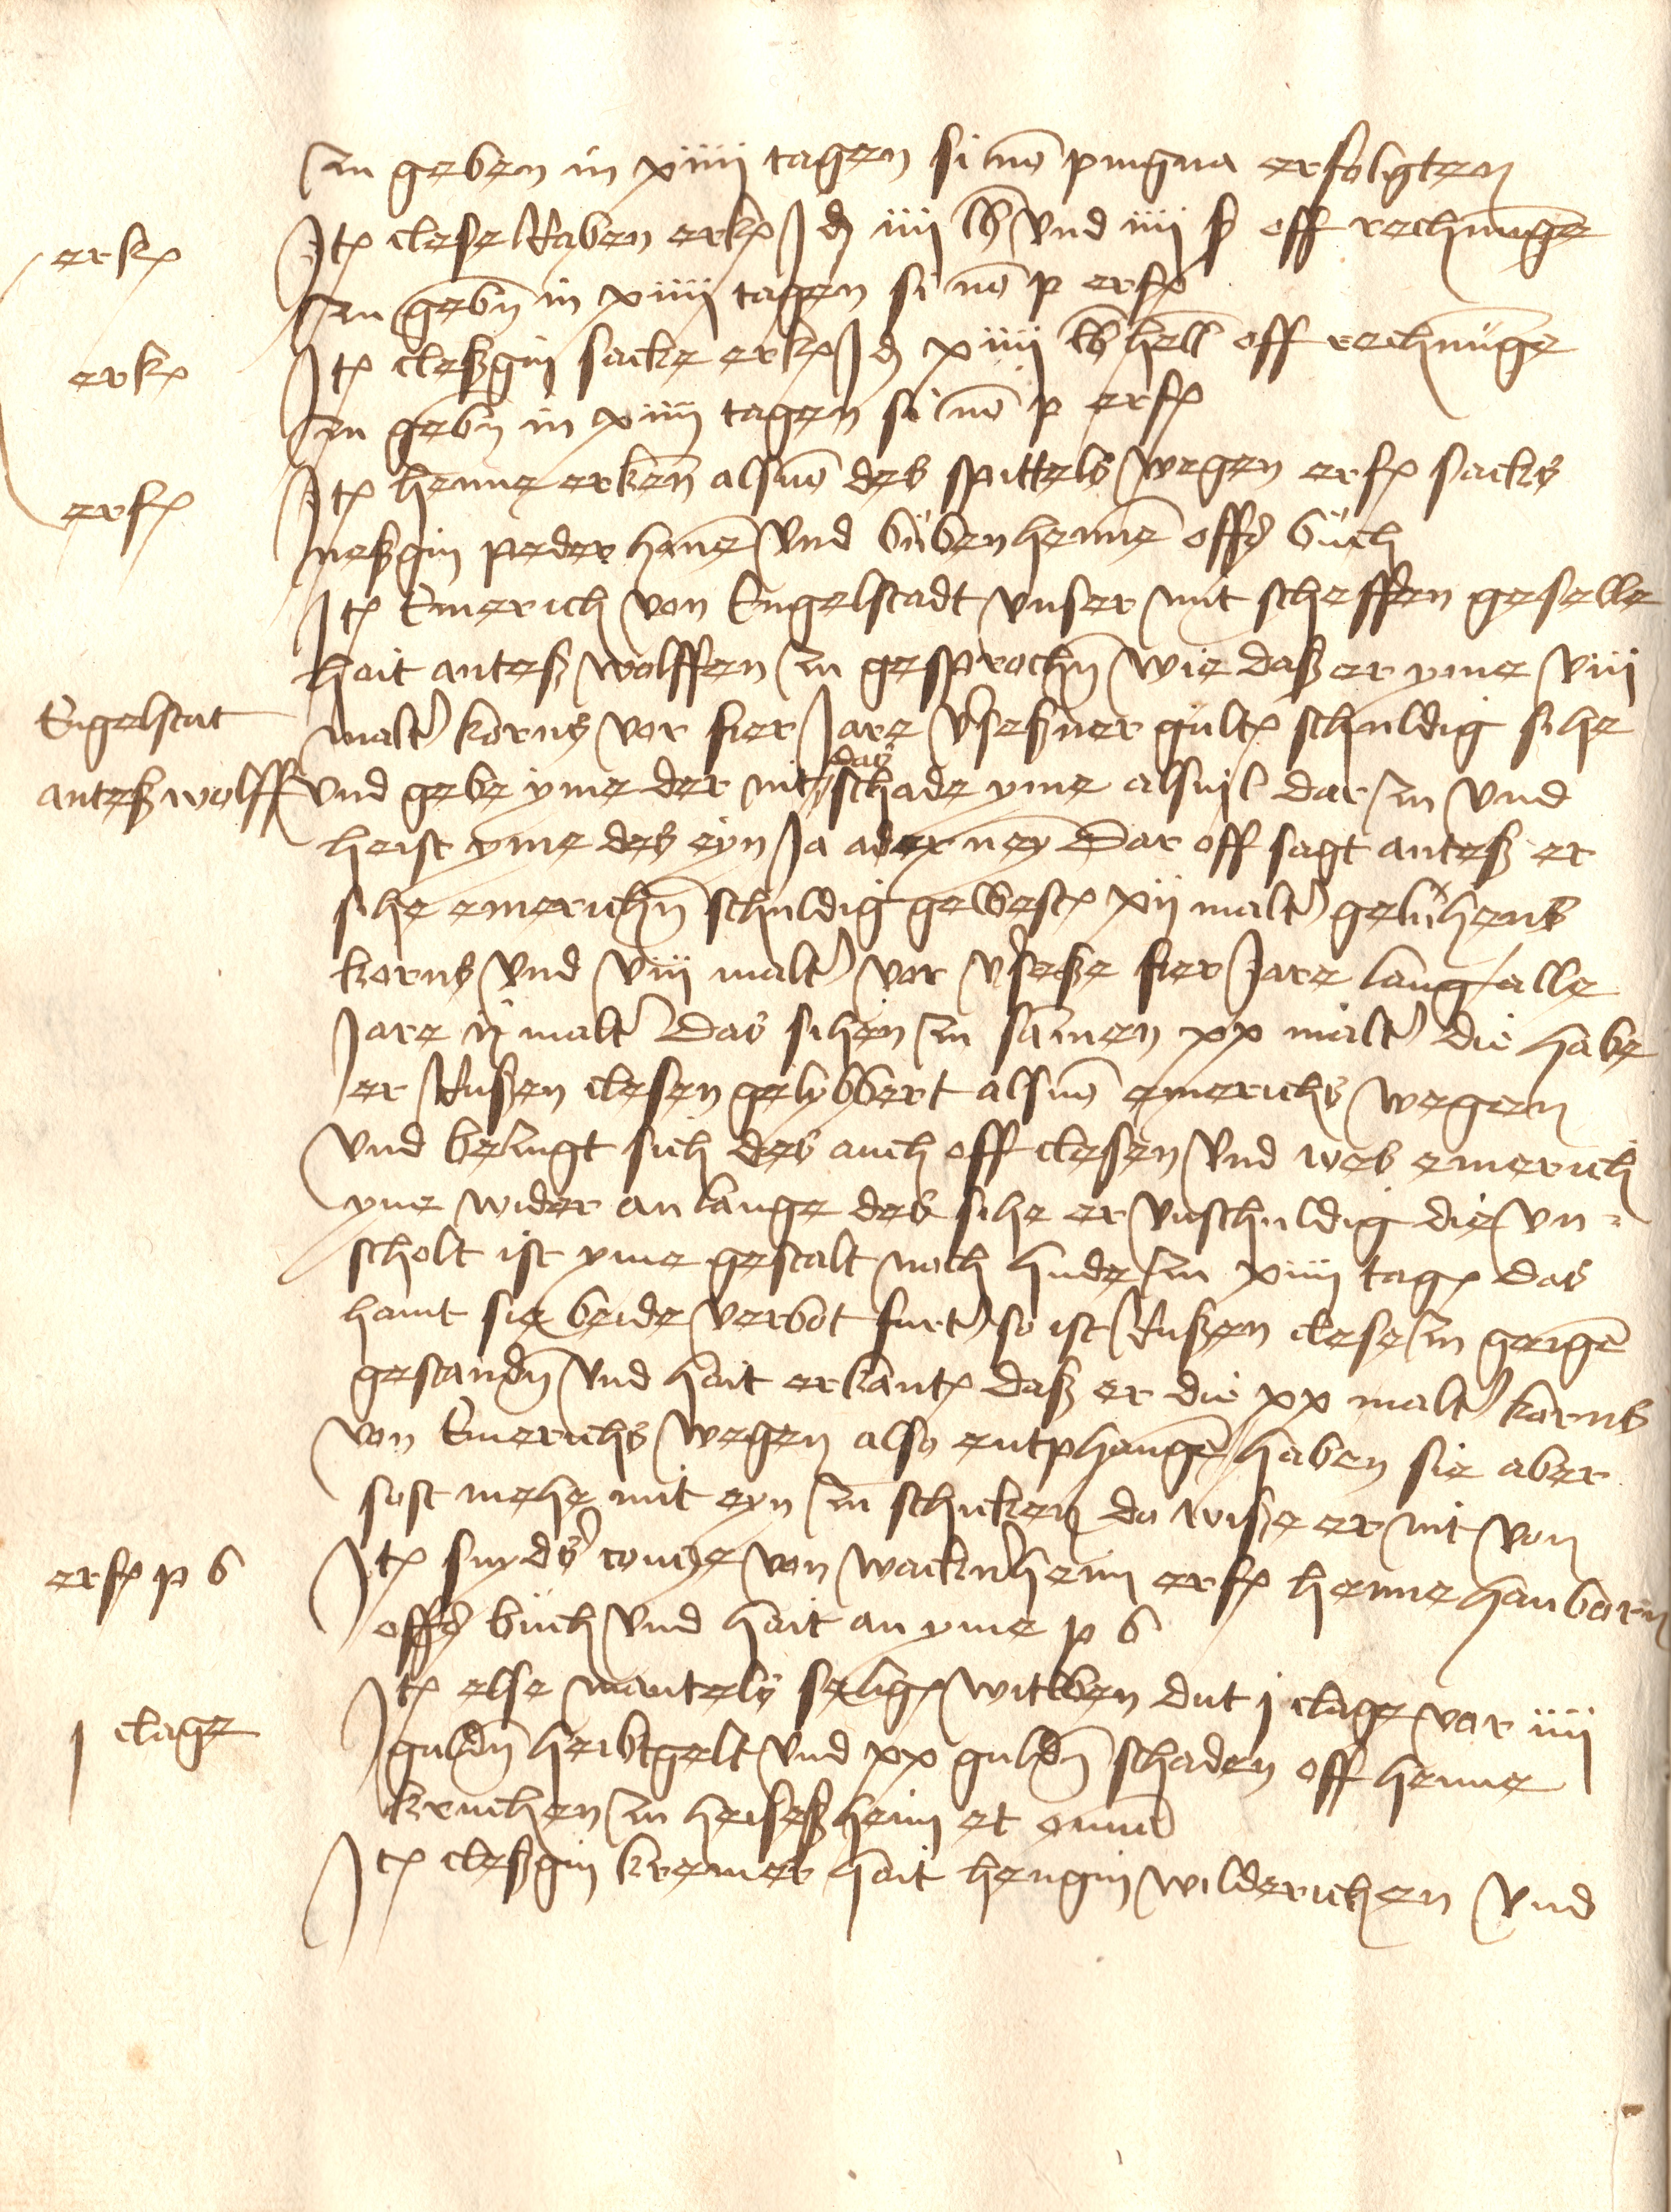 zu geben in xiiii tagen si no͞ pingna erfolgten
erkꝭ
Itꝭ clese Raben erkꝭ Iꝺ iiii lb vnd iiii ß off rechnunge͞
zu geben͞ in xiiii tagen si no͞ p erfꝭ
erkꝭ
Itꝭ cleßgin sacke erkꝭ Iꝺ xiiii lb hell͞ off rechnu͞ge
zu geben͞ in xiiii tagen si no͞ p erfꝭ
erfꝭ
Itꝭ henne erken͞ als vo͞ des spittels wegen erfꝭ sacks
neßgin peder hane͞ vnd büben henne͞ offꝺ büch
Itꝭ Emerich von Engelstadt vnser mit scheffen geselle
hait anteß wolffen zu gesproch͞n wie daß er yme viii
Engelstat
malt͛ korns vor fier Jare v͛seßner gültꝭ schuldig sihe
anteß wolff
vnd gebe yme der nit das schade yme alsuil dar zu vnd
heist yme des eyn Ja ader ney͞ Dar off sagt anteß er
sihe emerich͞n schuldig gewestꝭ xii malt͛ geluhens
korns vnd viii malt͛ vor v͛seße fier Jare lang alle
Jare ii malt͛ Das sihen zu samen xx malt͛ die habe
er Rußen clesen gelybbert als vo͞ emerichs wegen
vnd bezugt sich des auch off clesen vnd wes emerich
yne wider anlange des sihe er vnschuldig die vn-
scholt ist yme gestalt noch hude zu xiiii tagꝭ das
hant sie beide verbot furt͛ so ist Rußen clese zu geige͞
gestand͞n vnd hait erkantꝭ daß er die xx malt͛ korns
von Emerichs wegen also entphange͞ haben sie aber
sost mehe mit eyn zu schicken da wiße er nit von
erfꝭ p b
Itꝭ snyd͛s conꝛze von wackn͛heim erfꝭ henne hanborn
offꝺ büch vnd hait an yme p b
I clage
Itꝭ else mantels seligꝭ witwen dut j clage vor iiii
guld͞n heubtgelt vnd xx guld͞n schaden off henne
kruchen zu heiseßheim et omnia
Itꝭ cleßgin kremer hait hengin wilderichen vnd